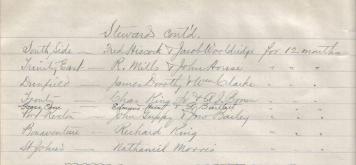 Steward Cont'd.
South Side — Fred Hiscock & Jacob Wooldridge for 12 months
Trinity East — R. Mills & John House " "
Dunfield — James Dorothy & Wm Clarke " "
King
Goose Cove — Edmund Bartlett
Port Rexton — John Guppy & Bailey
Bonaventure — Richard King
St John's — Nathaniel Morris